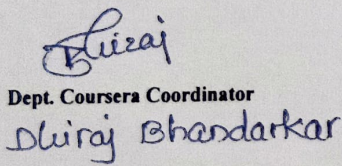 Dhiraj
Dept. Coursera Coordinator
Dhiraj Bhandarkar